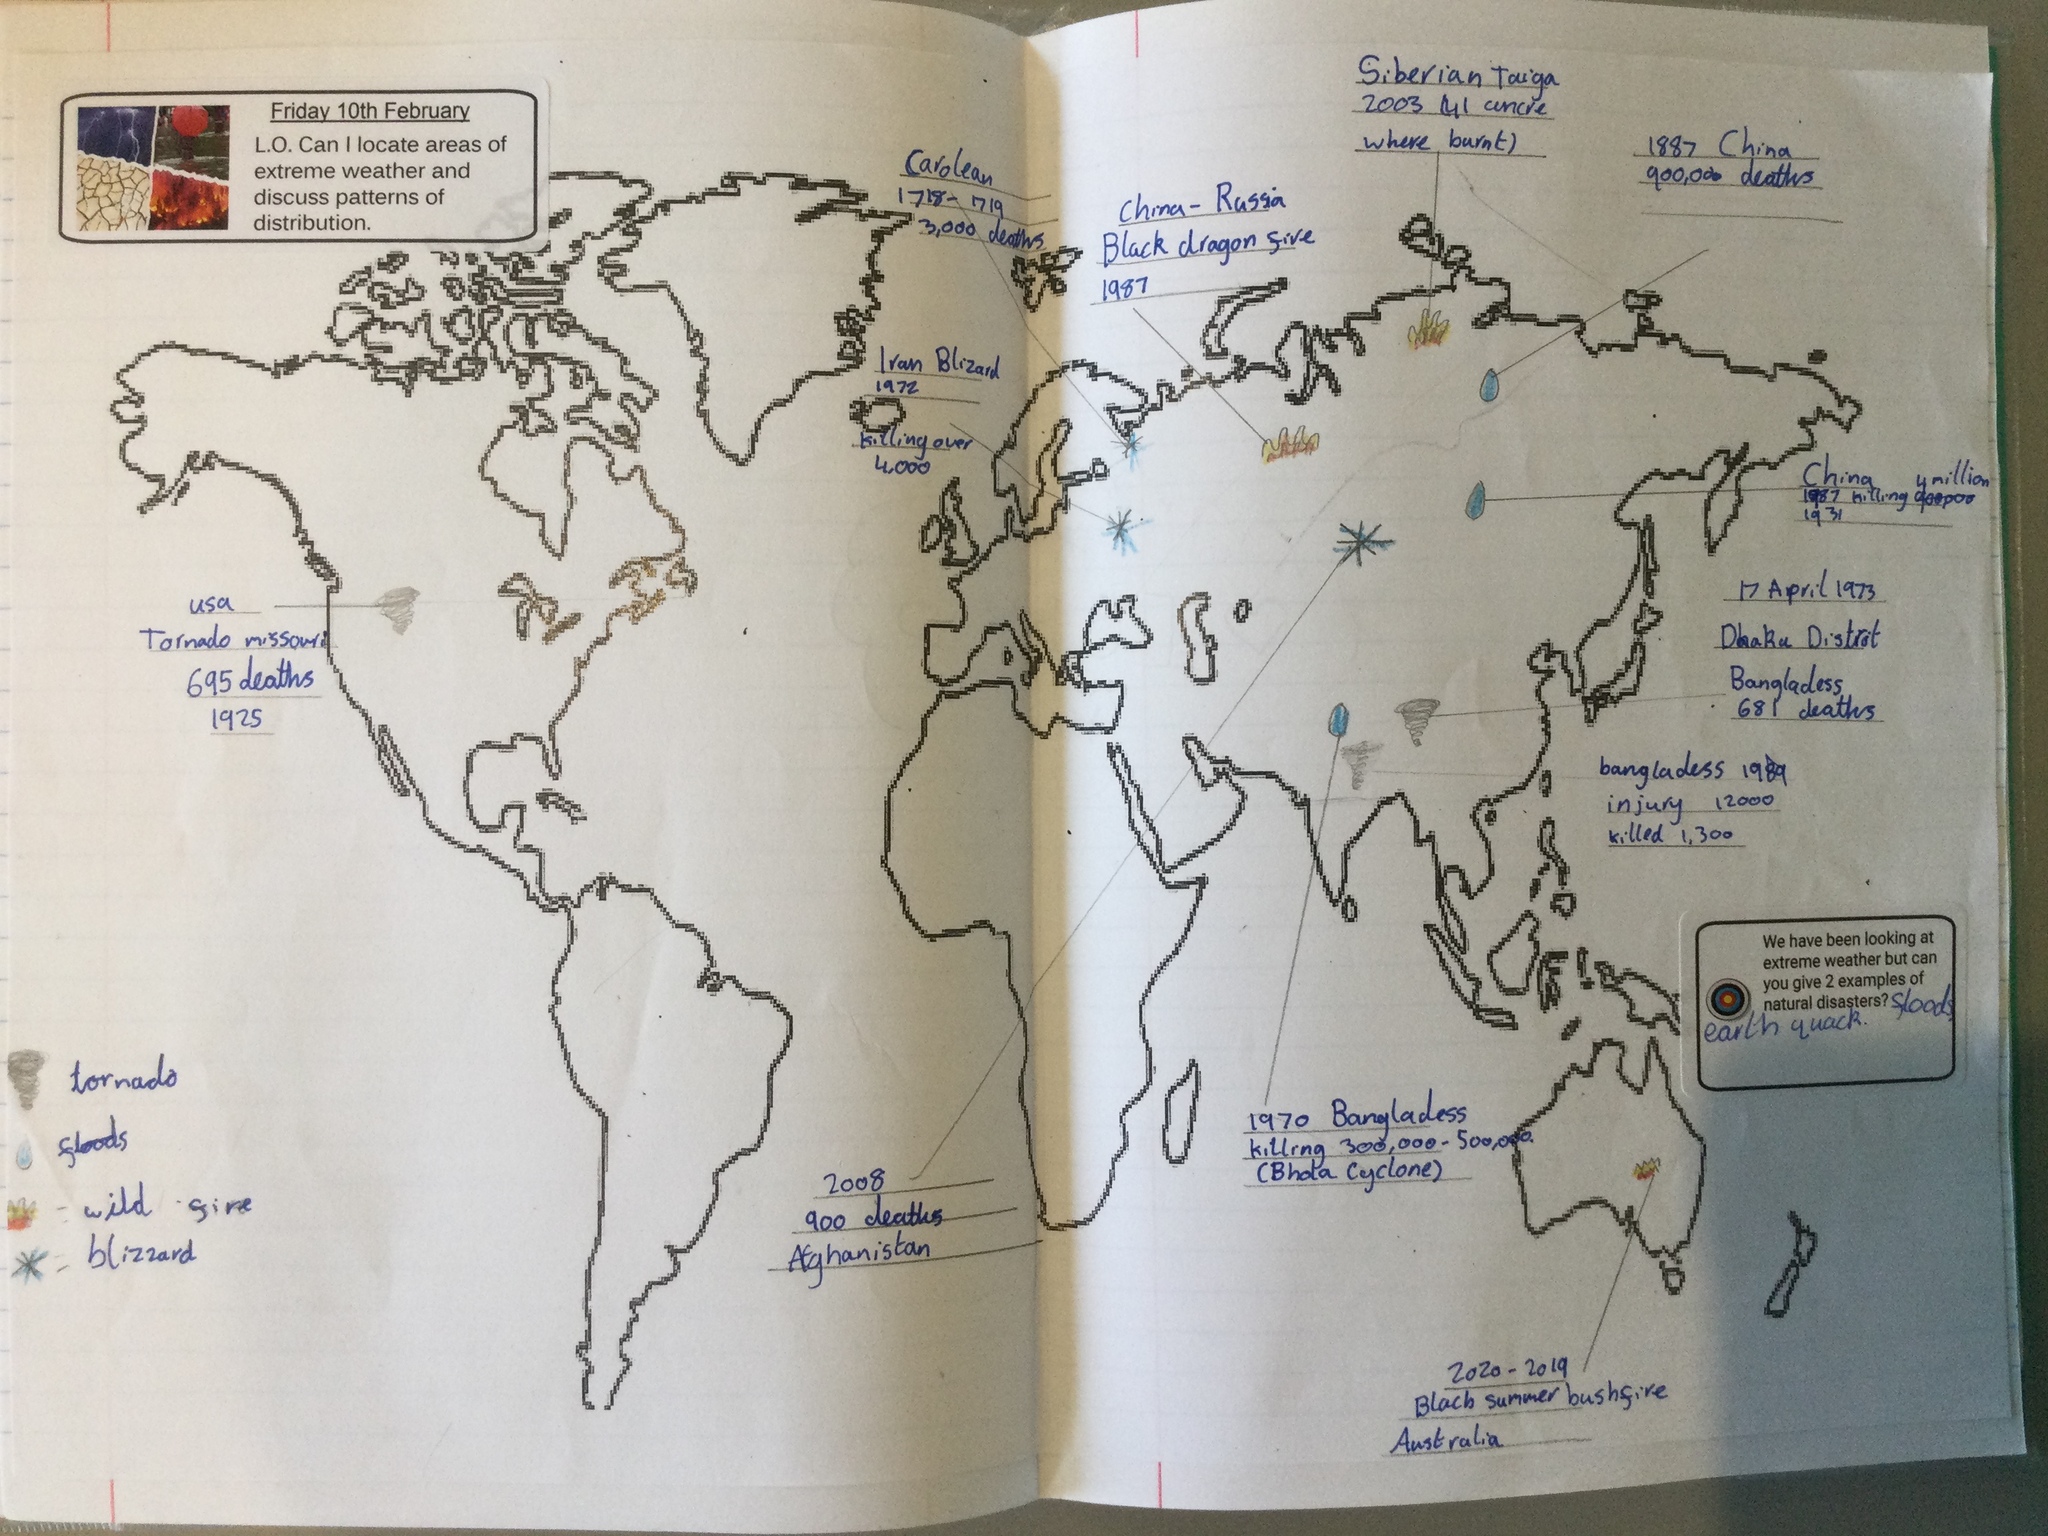 Friday 10th February
L.O. Can I locate areas of
extreme weather and
discuss patterns of
distribution.
Carolean
1718- 1719
3,000 deaths
Iran Blizard
1972
killing over
4,000
China- Russia
Black dragon fire
1987
Siberian Taiga
2003 (41 ancre
where burnt)
1887 China
900,000 deaths
China 4 million
1887 killing 900,000
1931
usa
Tornado missouri
695 deaths
1925
17 April 1973
Dhaka Distrot
Bangladess
681 deaths
bangladess 1989
injury 12000
killed 1,300
We have been looking at
extreme weather but can
you give 2 examples of
natural disasters? floods
earth quack.
tornado
floods
- wild fire
- blizzard
2008
900 deaths
Afghanistan
1970 Bangladess
killing 300,000- 500,000.
(Bhola Cyclone)
2020 - 2019
Black summer bushfire
Australia